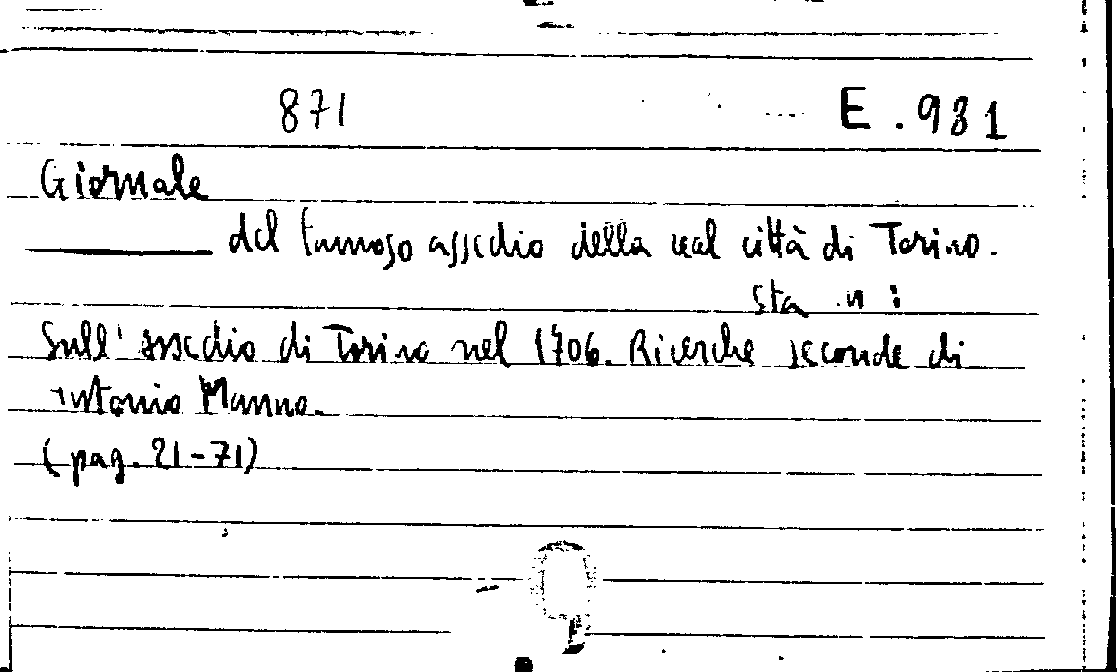 871 E.981
Giornale
del famoso assedio della real città di Torino.
sta in :
Sull' assedio di Torino nel 1706. Ricerche seconde di
Antonio Manno.
(pag. 21-71)